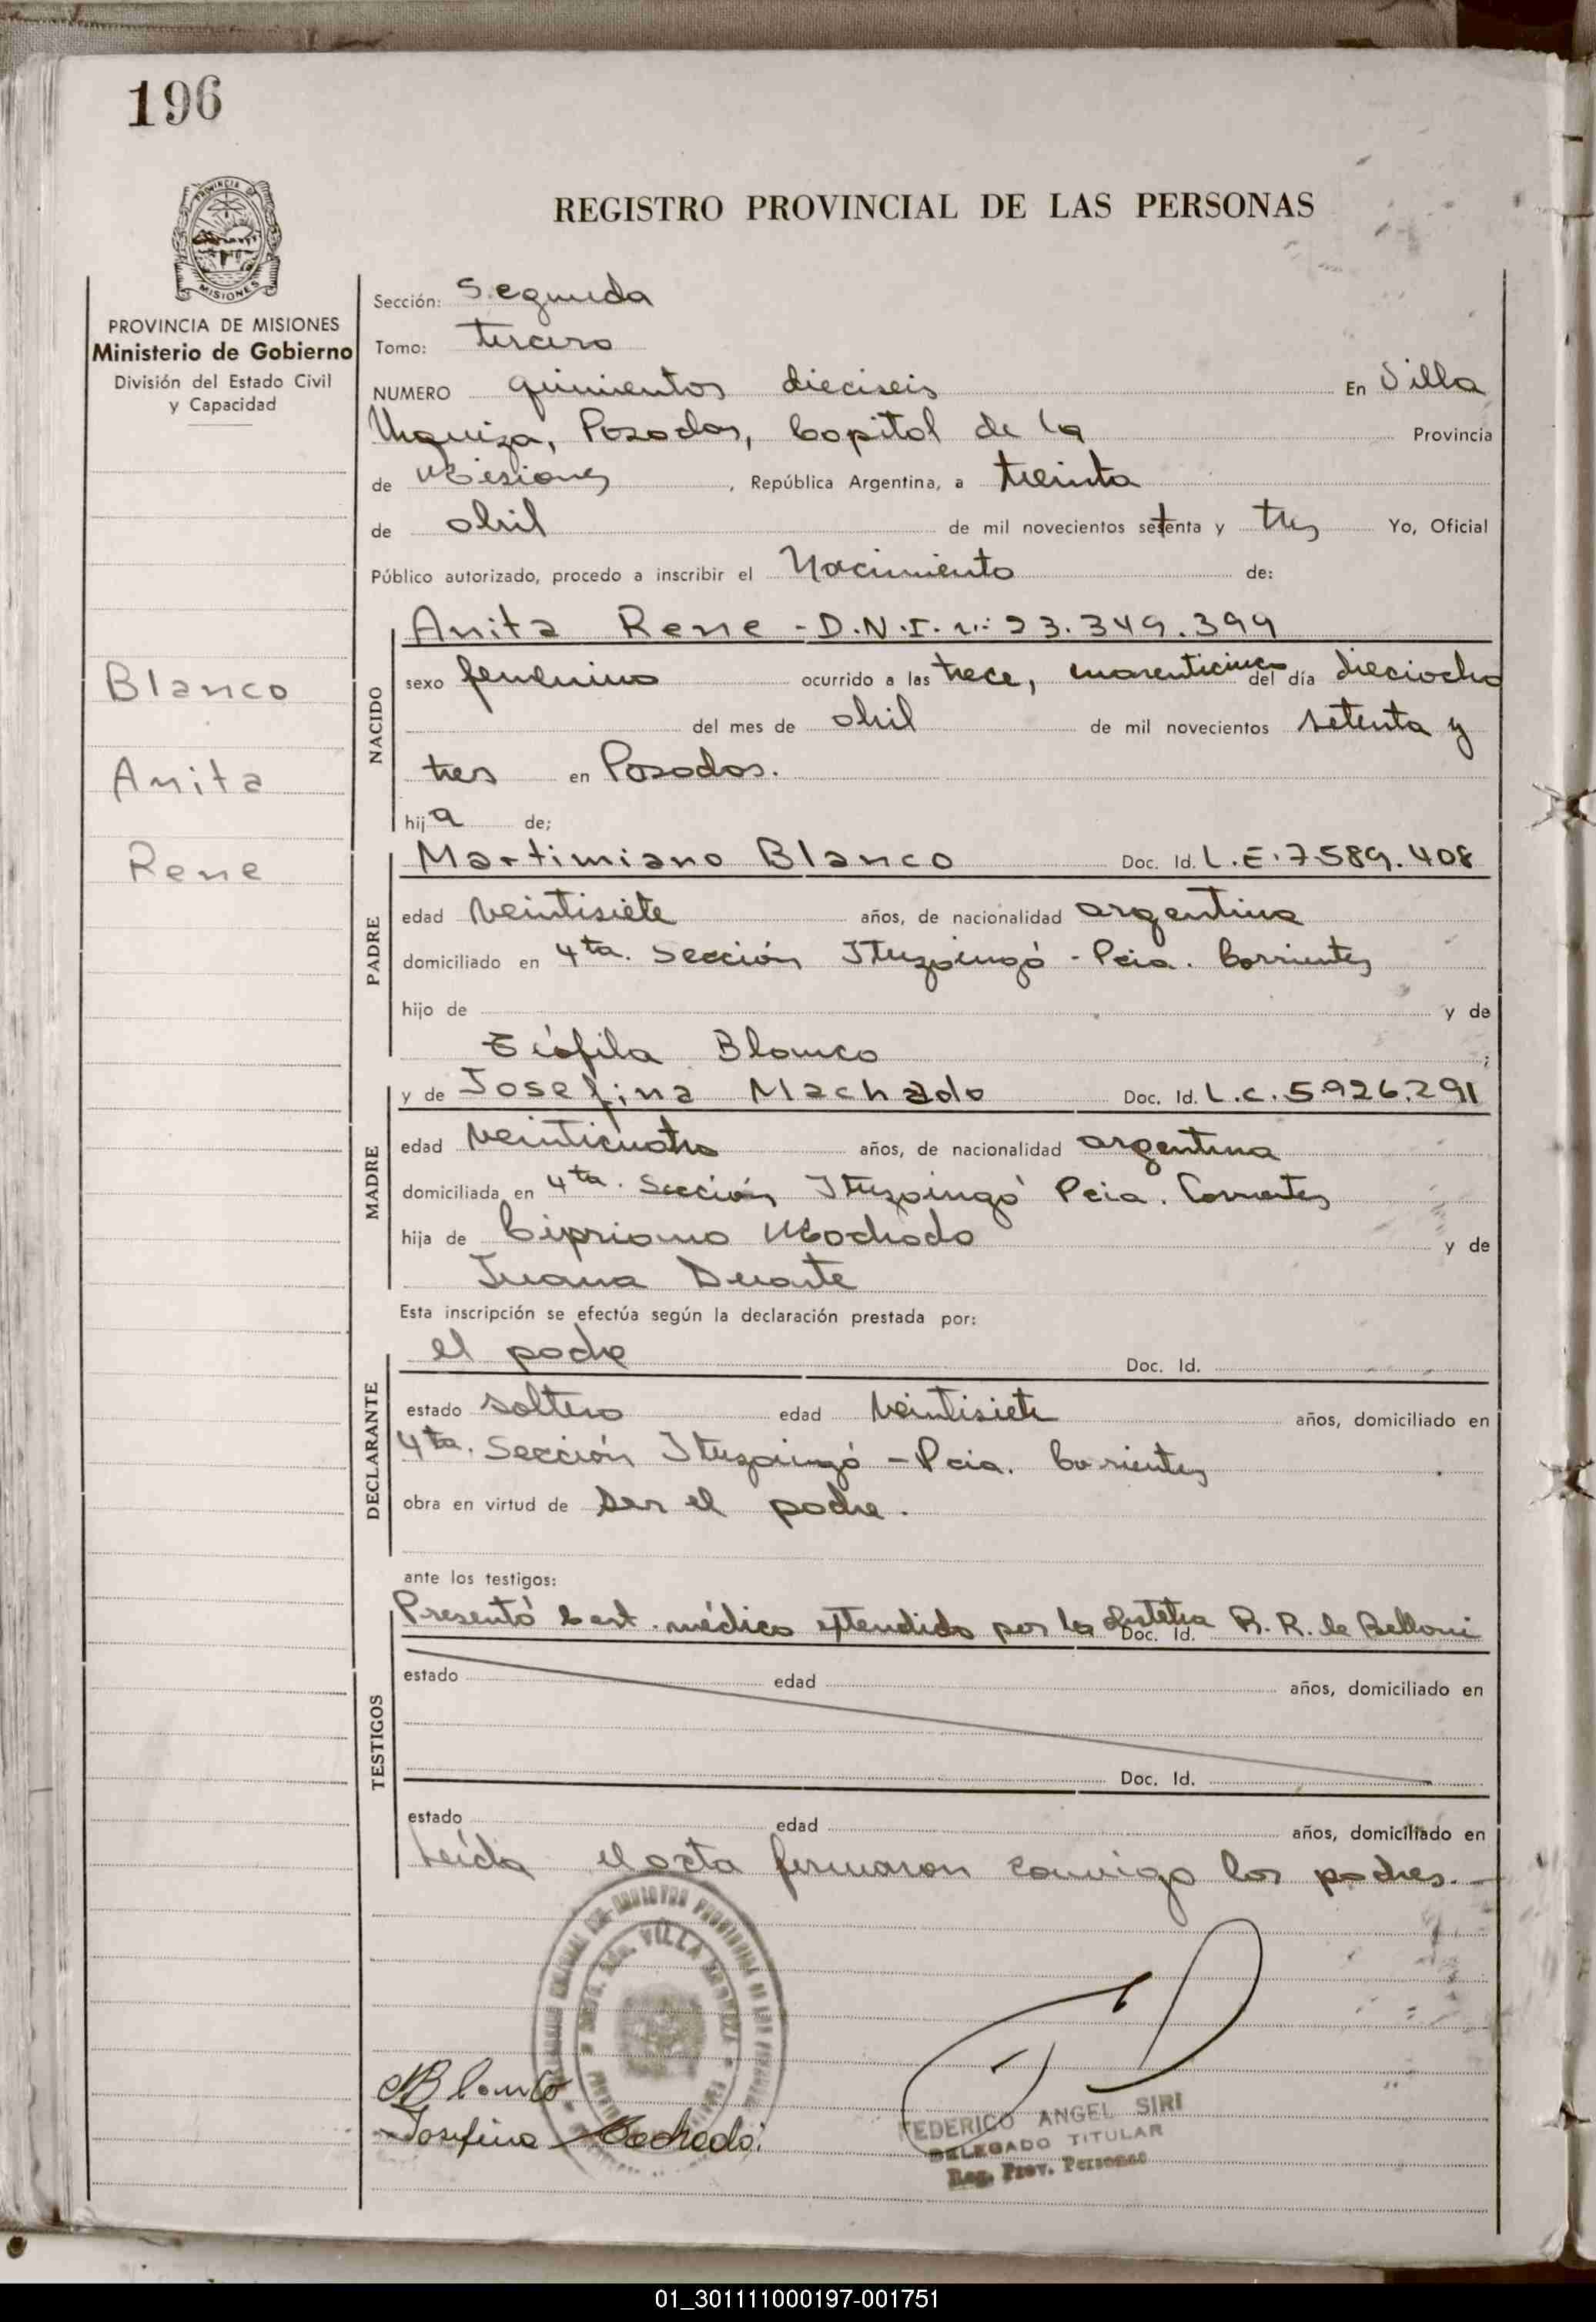 196
PROVINCIA DE
MISIONES
REGISTRO PROVINCIAL DE LAS PERSONAS
PROVINCIA DE MISIONES
Ministerio de Gobierno
División del Estado Civil
y Capacidad
Blanco
Anita
Rene
Sección: Segunda
Tomo: tercero
NUMERO quinientos dieciseis En Villa
Urquiza, Posadas, Capital de la Provincia
de Misiones, República Argentina, a treinta
de abril de mil novecientos setenta y tres Yo, Oficial
Público autorizado, procedo a inscribir el Nacimiento de:
NACIDO
Anita Rene - D.N.I. n: 23.349.399
sexo femenino ocurrido a las trece, cuarenticinco del día dieciocho
del mes de abril de mil novecientos setenta y
tres en Posadas.
hija de;
PADRE
Martimiano Blanco Doc. Id. L.E. 7589.408
edad veintisiete años, de nacionalidad argentina
domiciliado en 4ta. Sección Ituzaingó - Pcia. Corrientes
hijo de y de
Teófila Blanco ;
MADRE
y de Josefina Machado Doc. Id. L.C. 5.926.291
edad veinticuatro años, de nacionalidad argentina
domiciliada en 4ta. Sección Ituzaingó Pcia. Corrientes
hija de Cipriano Machado y de
Juana Duarte
Esta inscripción se efectúa según la declaración prestada por:
DECLARANTE
el padre Doc. Id.
estado soltero edad veintisiete años, domiciliado en
4ta. Sección Ituzaingó - Pcia. Corrientes
obra en virtud de ser el padre.
ante los testigos:
TESTIGOS
Presentó Cert. médico extendido por la obstetra R. R. de Belloni
Doc. Id.
estado edad años, domiciliado en
Doc. Id.
estado edad años, domiciliado en
Leída el acta firmaron conmigo los padres.-
MBlanco
Josefina Machado
FEDERICO ANGEL SIRI
DELEGADO TITULAR
Reg. Prov. Personas
01_301111000197-001751